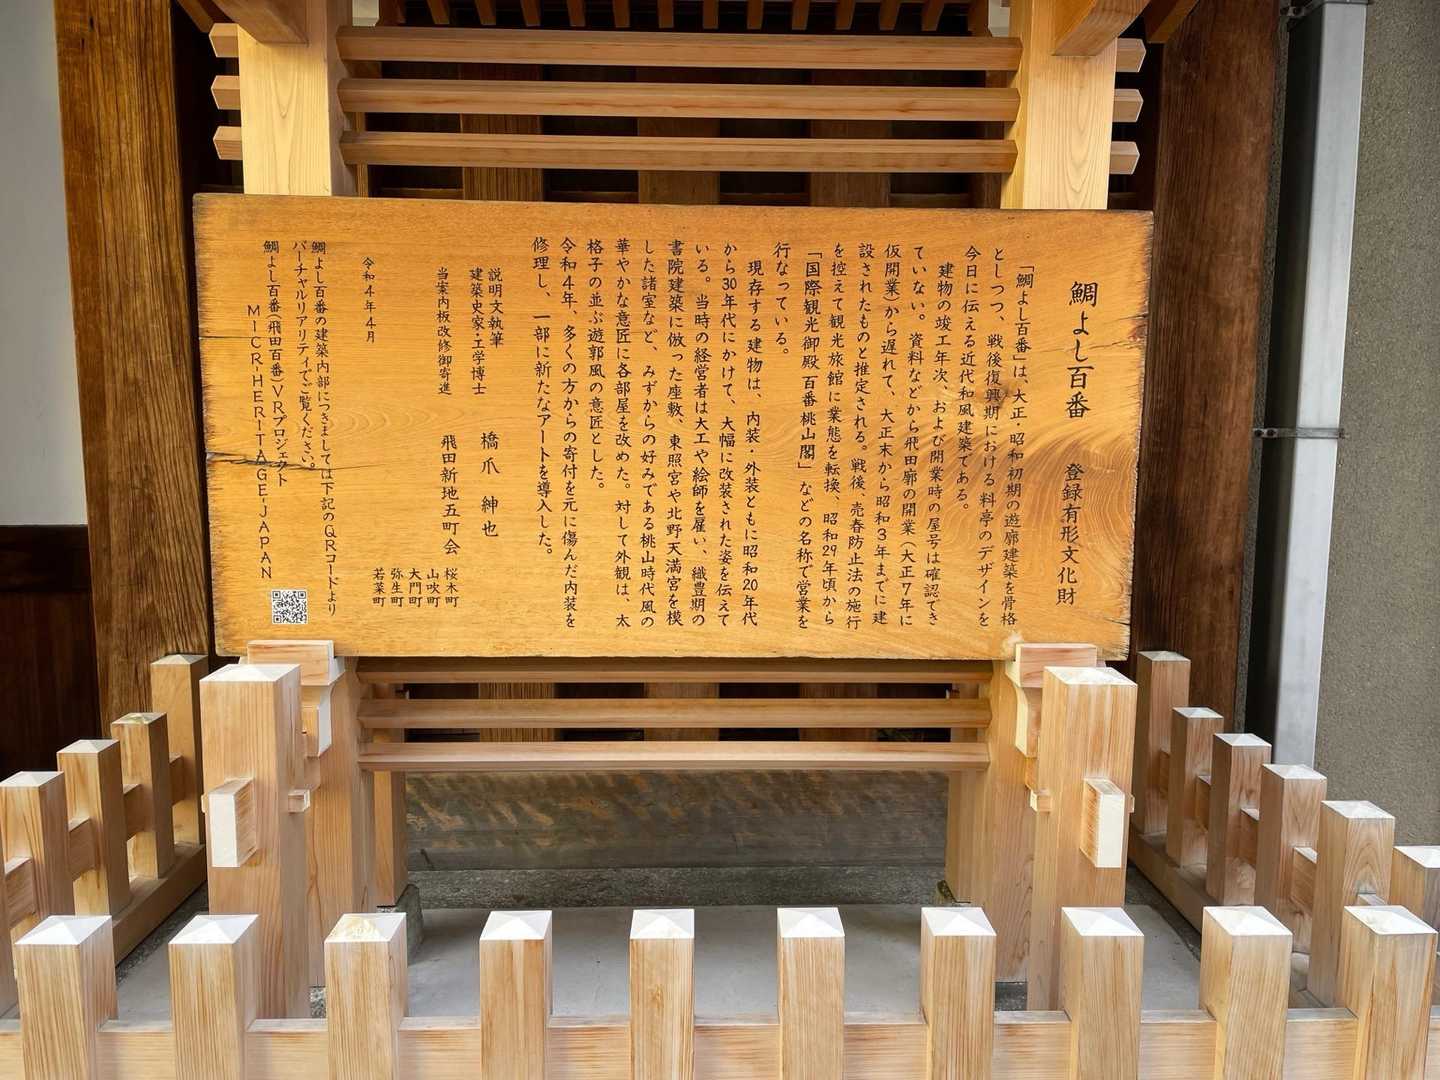 鯛よし百番　登録有形文化財
「鯛よし百番」は、大正・昭和初期の遊廓建築を骨格
としつつ、戦後復興期における料亭のデザインを
今日に伝える近代和風建築である。
建物の竣工年次、および開業時の屋号は確認でき
ていない。資料などから飛田廓の開業（大正7年に
仮開業）から遅れて、大正末から昭和3年までに建
設されたものと推定される。戦後、売春防止法の施行
を控えて観光旅館に業態を転換、昭和29年頃から
「国際観光御殿 百番桃山閣」などの名称で営業を
行なっている。
現存する建物は、内装・外装ともに昭和20年代
から30年代にかけて、大幅に改装された姿を伝えて
いる。当時の経営者は大工や絵師を雇い、織豊期の
書院建築に倣った座敷、東照宮や北野天満宮を模
した諸室など、みずからの好みである桃山時代風の
華やかな意匠に各部屋を改めた。対して外観は、太
格子の並ぶ遊郭風の意匠とした。
令和4年、多くの方からの寄付を元に傷んだ内装を
修理し、一部に新たなアートを導入した。
説明文執筆
建築史家・工学博士　橋爪　紳也
当案内板改修御寄進　飛田新地五町会
桜木町
山吹町
大門町
弥生町
若菜町
令和4年4月
鯛よし百番の建築内部につきましては下記のQRコードより
バーチャルリアリティでご覧ください。
鯛よし百番(飛田百番)VRプロジェクト
MICR-HERITAGE-JAPAN